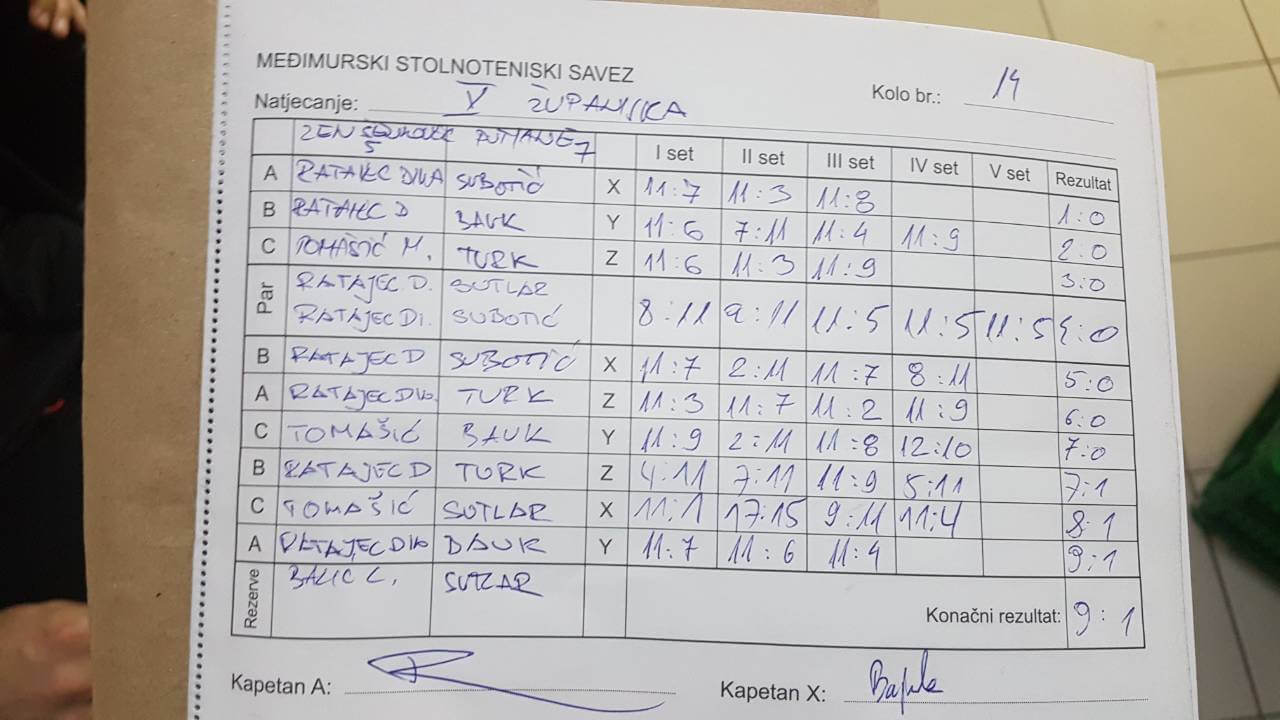 MEĐIMURSKI STOLNOTENISKI SAVEZ
Kolo br.: 14
Natjecanje: V ŽUPANIJSKA
ZEN PUTJANE 7
5
I set II set III set IV set V set Rezultat
A RATAJEC DINA SUBOTIĆ X 11:7 11:3 11:8 1:0
B RATAJEC D BAUK Y 11:6 7:11 11:4 11:9 2:0
C TOMAŠIĆ M. TURK Z 11:6 11:3 11:9 3:0
Par RATAJEC D. SUTLAR
RATAJEC DI. SUBOTIĆ 8:11 9:11 11:5 11:5 11:5 4:0
B RATAJEC D SUBOTIĆ X 11:7 2:11 11:7 8:11 5:0
A RATAJEC DIO. TURK Z 11:3 11:7 11:2 11:9 6:0
C TOMAŠIĆ BAUK Y 11:9 2:11 11:8 12:10 7:0
B RATAJEC D TURK Z 4:11 7:11 11:9 5:11 7:1
C TOMAŠIĆ SUTLAR X 11:1 17:15 9:11 11:4 8:1
A RATAJEC DIO BAUK Y 11:7 11:6 11:4 9:1
Rezerve BALIC L. SUTLAR
Konačni rezultat: 9:1
Kapetan A:
Kapetan X: